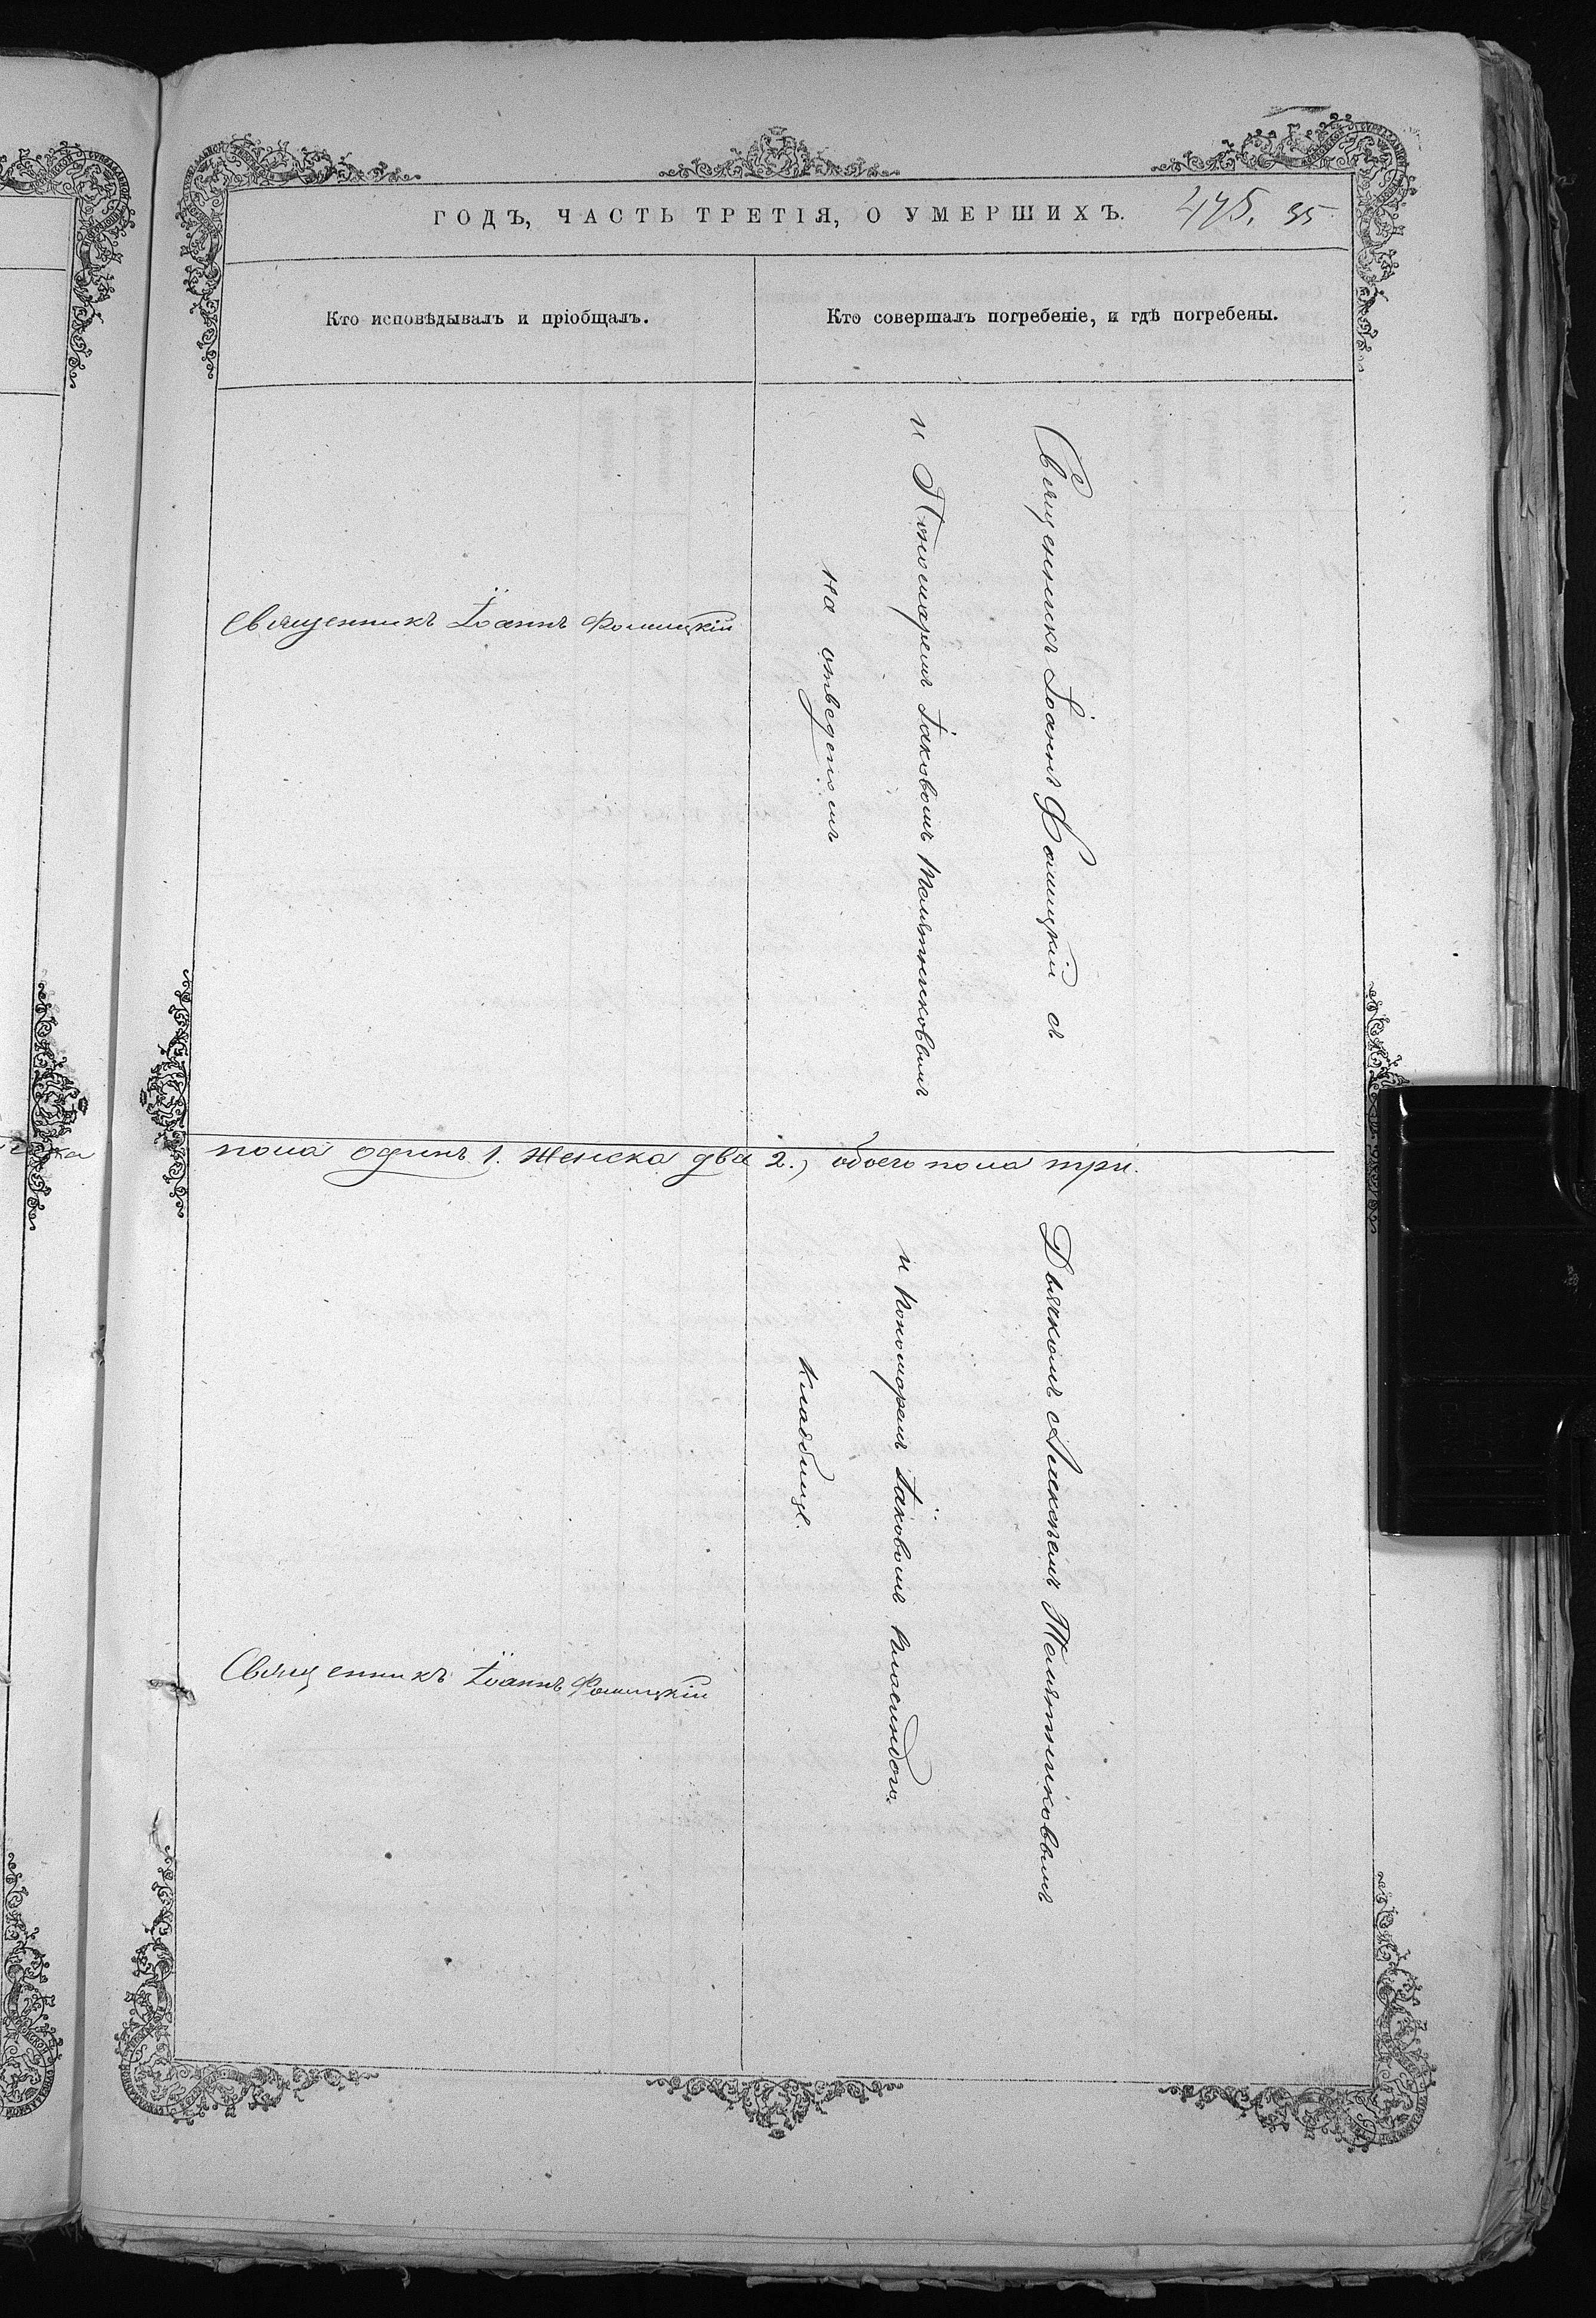 ГОДЪ, ЧАСТЬ ТРЕТІЯ, О УМЕРШИХЪ.
475. 35
Кто исповѣдывалъ и пріобщалъ.
Кто совершалъ погребеніе, и гдѣ погребены.
Священникъ Іоаннъ Фомицкій
Священникъ Іоаннъ Фомицкій съ
и Пономаремъ Іаковомъ
на отведеномъ
пола одинъ 1. женска два 2., обоего пола три.
Священникъ Іоаннъ Фомицкій
Дьячкомъ Алексѣемъ
и пономоремъ Іаковомъ
кладбищѣ.